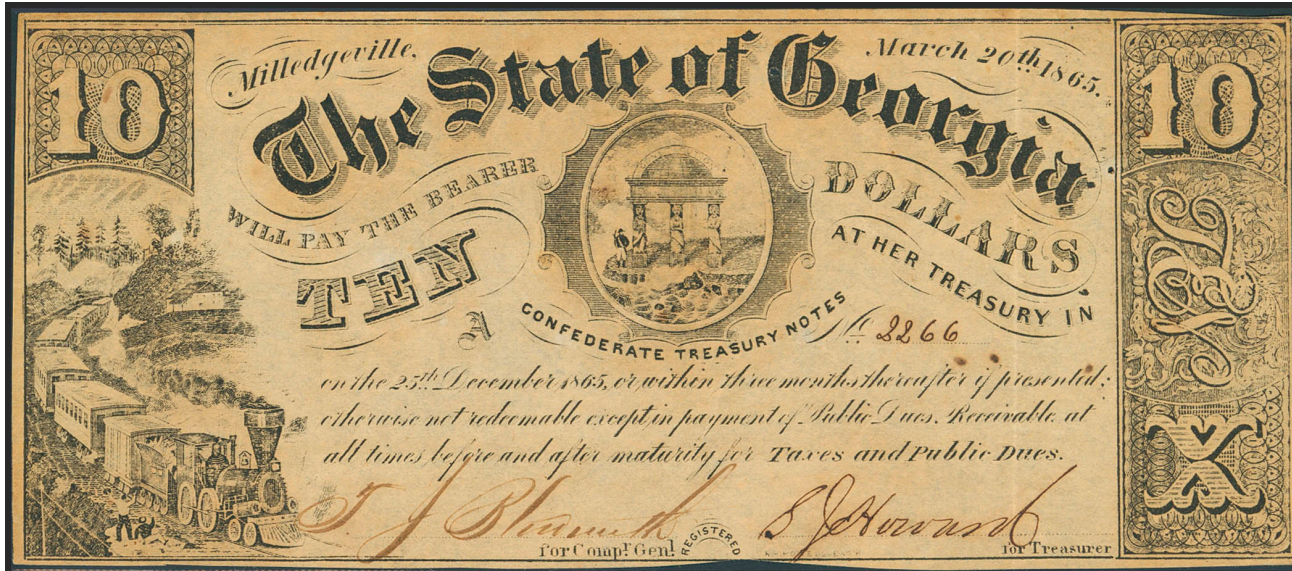 10
Milledgeville,
March 20th, 1865.
10
The State of Georgia
WILL PAY THE BEARER
TEN
DOLLARS
AT HER TREASURY IN
CONFEDERATE TREASURY NOTES
A
No 2266
on the 25th December 1865, or within three months thereafter if presented;
otherwise not redeemable except in payment of Public Dues. Receivable, at
all times, before and after maturity for Taxes and Public Dues.
X
S J Howard
for Compr. Genl.
REGISTERED
for Treasurer